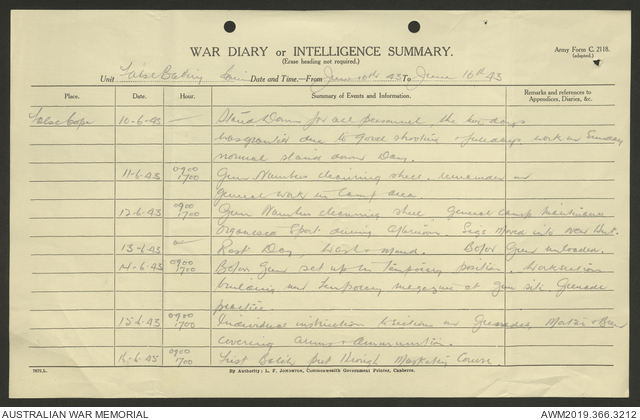 WAR DIARY or INTELLIGENCE SUMMARY.
Army Form C. 2118.
(adapted.)
(Erase heading not required.)
Unit False Date and Time.—From June 10th 43 To June 16th 43
Place. Date. Hour. Summary of Events and Information. Remarks and references to
Appendices, Diaries, &c.
False Cape 10-6-43 — Stand Down for all personnel, the two days
was granted due to good shooting + full days work on Sunday
normal stand down Day.
11-6-43 0900 1700 Gun Numbers cleaning shell, remainder on
general work in Camp area.
12-6-43 0900 1700 Gun Numbers cleaning shell. General camp maintenance
Organised Sport during afternoon. Sigs Moved into New Hut.
13-6-43 Rest Day, Bofor Gun unloaded.
14-6-43 0900 1700 Bofor Gun set up in temporary position.
building new temporary magazine at gun site. Grenade
practice.
15-6-43 0900 1700 Individual instruction to sections on Grenades, Mortar + Bren
covering arms + ammunition.
16-6-43 0900 1700 First Batch put through Course.
7872.L. By Authority: L. F. Johnston, Commonwealth Government Printer, Canberra.
AUSTRALIAN WAR MEMORIAL
AWM2019.366.3212